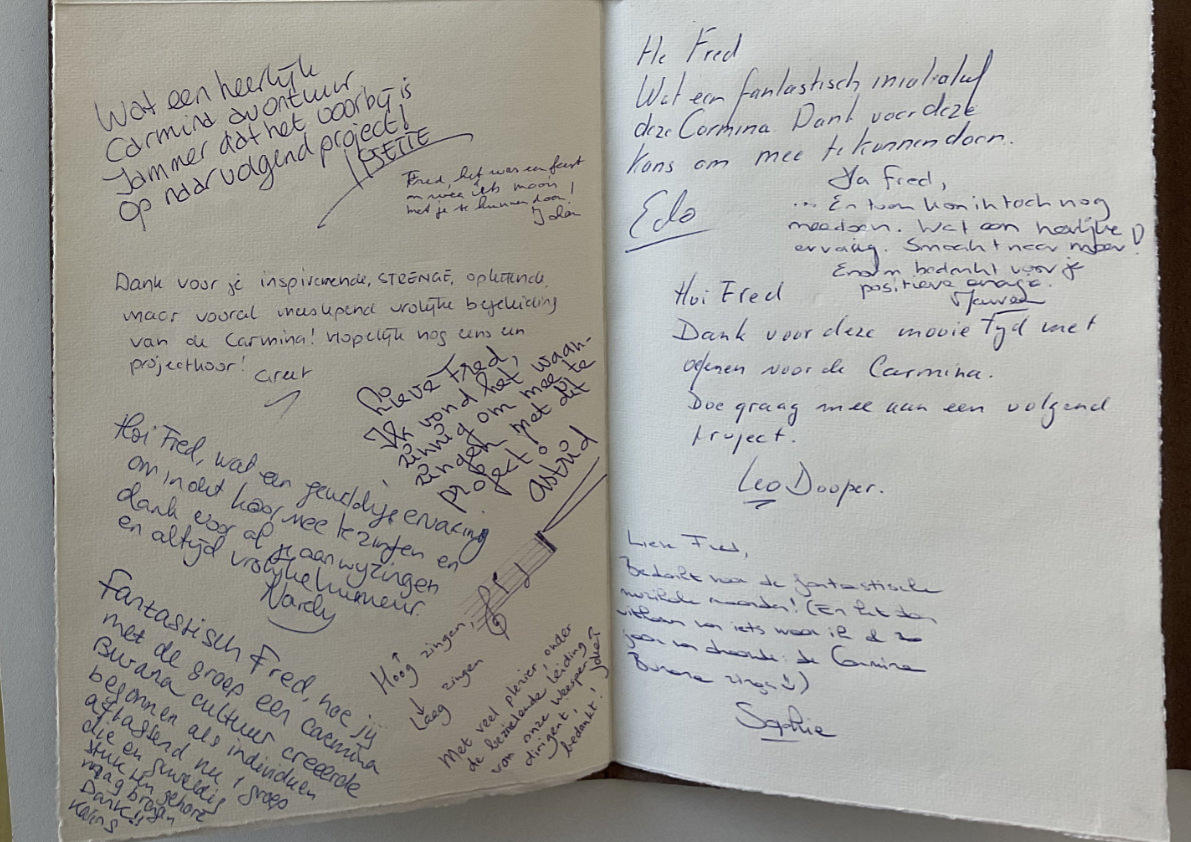 Wat een heerlijk
Carmina avontuur
Jammer dat het voorbij is
op naar volgend project!
JETTE
Fred, het was een feest
om weer iets moois
met je te kunnen doen!
Dank voor je inspirerende, STRENGE, oplettende,
maar vooral meeslepend vrolijke begeleiding
van de Carmina! Hopelijk nog eens een
projectkoor!
Greet
Lieve Fred,
Ik vond het waan-
zinnig om mee te
zingen met dit
project!
Astrid
Hoi Fred, wat een geweldige ervaring
om in dit koor mee te zingen en
dank voor al je aanwijzingen
en altijd vrolijke humeur.
Nardy
Hoog zingen,
Laag zingen
Fantastisch Fred, hoe jij
met de groep een Carmina
Burana cultuur creëerde
begonnen als individuen
aftastend nu 1 groep
die en geweldig
stuk ten gehore
mag brengen
Dank!!
Karins
Met veel plezier, onder
de bezielende leiding
van onze Weesper
dirigent,
bedankt!
He Fred
Wat een fantastisch initiatief
deze Carmina Dank voor deze
kans om mee te kunnen doen.
Edo
Ja Fred,
... En toen kon ik toch nog
meedoen. Wat een heerlijke
ervaring. Smacht naar meer!
Enorm bedankt voor je
positieve energie.
Hoi Fred
Dank voor deze mooie tijd met
oefenen voor de Carmina.
Doe graag mee aan een volgend
project.
Leo Dooper.
Lieve Fred,
Bedankt voor de fantastische
muzikale maanden! (En het
van iets waar ik al zo
jaar van droomde: de Carmina
Burana zingen)
Sophie